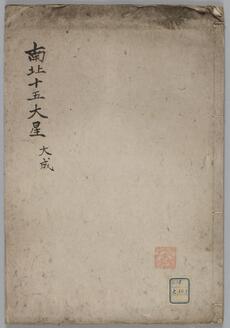 南北十五大星
大成